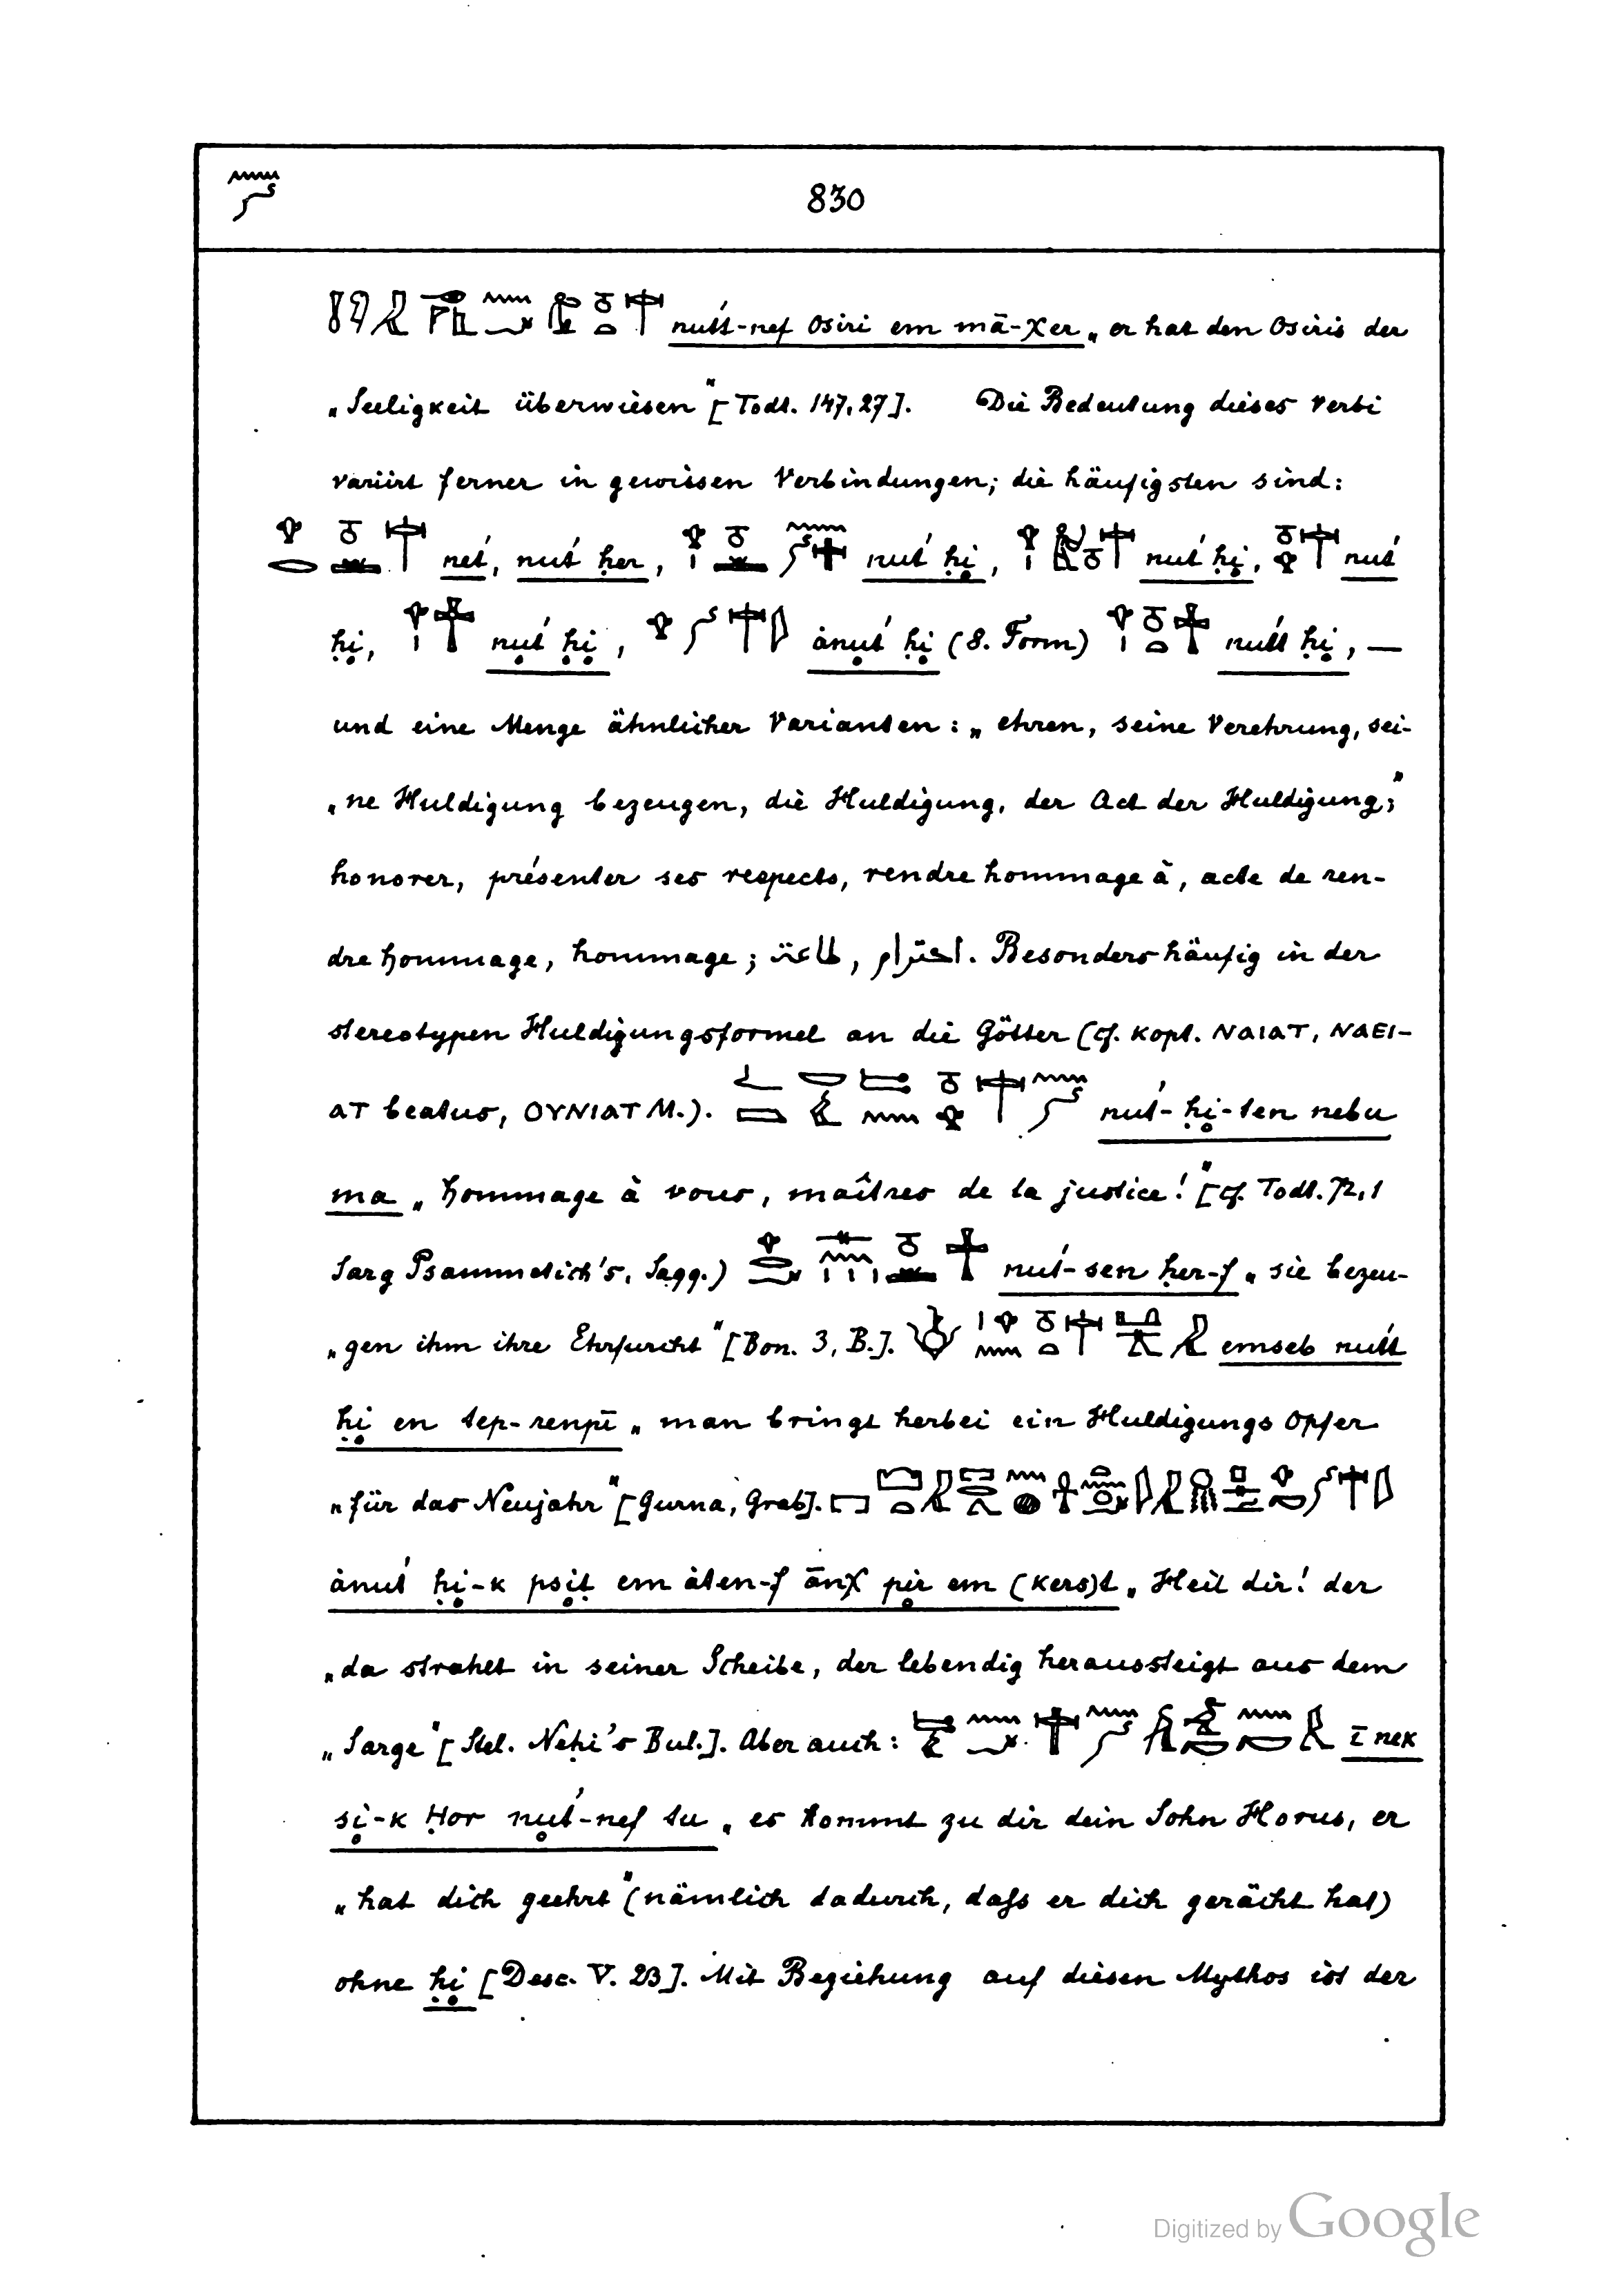 830
nutt́-nef Osiri em mā-χer „er hat den Osiris der
„Seeligkeit überwiesen" [Todt. 147,27]. Die Bedeutung dieses Verbi
variirt ferner in gewissen Verbindungen; die häufigsten sind:
net́, nut́ ḥer, nut́ ḥi̥, nut́ ḥi̥, nut́
ḥi̥, nu̥t́ ḥi̥, ȧnu̥t́ ḥi̥ (8. Form) nutt́ ḥi̥, —
und eine Menge ähnlicher Varianten: „ehren, seine Verehrung, sei-
„ne Huldigung bezeugen, die Huldigung, der Act der Huldigung;"
honorer, présenter ses respects, rendre hommage à, acte de ren-
dre hommage, hommage; طاعة, احترام. Besonders häufig in der
stereotypen Huldigungsformel an die Götter (cf. kopt. NAIAT, NAEI-
AT beatus, OYNIAT M.). nut́-ḥi̥-ten nebu
ma „hommage à vous, maîtres de la justice!" [cf. Todt. 72,1
Sarg Psammetich's, Saqq.) nut́-sen ḥer-f „sie bezeu-
„gen ihm ihre Ehrfurcht" [Bon. 3, B.]. emseb nutt́
ḥi̥ en tep-renpī „man bringt herbei ein Huldigungs Opfer
„für das Neujahr" [Gurna, Grab].
ȧnut́ ḥi̥-k psi̥ṭ em ȧten-f ānχ pi̥r em (kers)t „Heil dir! der
„da strahlt in seiner Scheibe, der lebendig heraussteigt aus dem
„Sarge" [Stel. Neḥi's Bul.]. Aber auch: ī nek
si̥-k Ḥor nu̥t́-nef tu „es kommt zu dir dein Sohn Horus, er
„hat dich geehrt" (nämlich dadurch, daſs er dich gerächt hat)
ohne ḥi̥ [Desc. V. 23]. Mit Beziehung auf diesen Mythos ist der
Digitized by Google